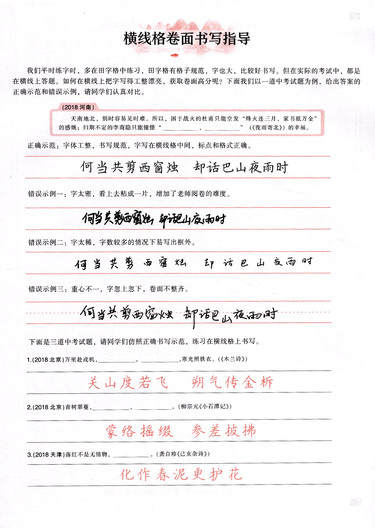 横线格卷面书写指导
我们平时练字时，多在田字格中练习，田字格有格子规范，字也大，比较好书写。但在实际的考试中，都是
在横线上答题。如何在横线上把字写得工整漂亮、获取卷面高分呢？下面我们以一道中考试题为例，给出答案的
正确示范和错误示例，请同学们认真对比。
(2018河南)
天南地北，别时容易见时难。所以，困于战火的杜甫只能空发“烽火连三月，家书抵万金”
的感慨；归期不定的李商隐只能憧憬“ ， ”（《夜雨寄北》）的幸福。
正确示范：字体工整，书写规范，字写在横线格中间，标点和格式正确。
何当共剪西窗烛 却话巴山夜雨时
错误示例一：字太密，看上去粘成一片，增加了老师阅卷的难度。
何当共剪西窗烛 却话巴山夜雨时
错误示例二：字太稀，字数较多的情况下易写出框外。
何当共剪西窗烛 却话巴山夜雨时
错误示例三：重心不一，字忽上忽下，卷面不整齐。
何当共剪西窗烛 却话巴山夜雨时
下面是三道中考试题，请同学们仿照正确书写示范，练习在横线格上书写。
1.(2018北京)万里赴戎机， 。 ，寒光照铁衣。（《木兰诗》）
关山度若飞 朔气传金柝
2.(2018北京)青树翠蔓， ， 。（柳宗元《小石潭记》）
蒙络摇缀 参差披拂
3.(2018天津)落红不是无情物， 。（龚自珍《己亥杂诗》）
化作春泥更护花